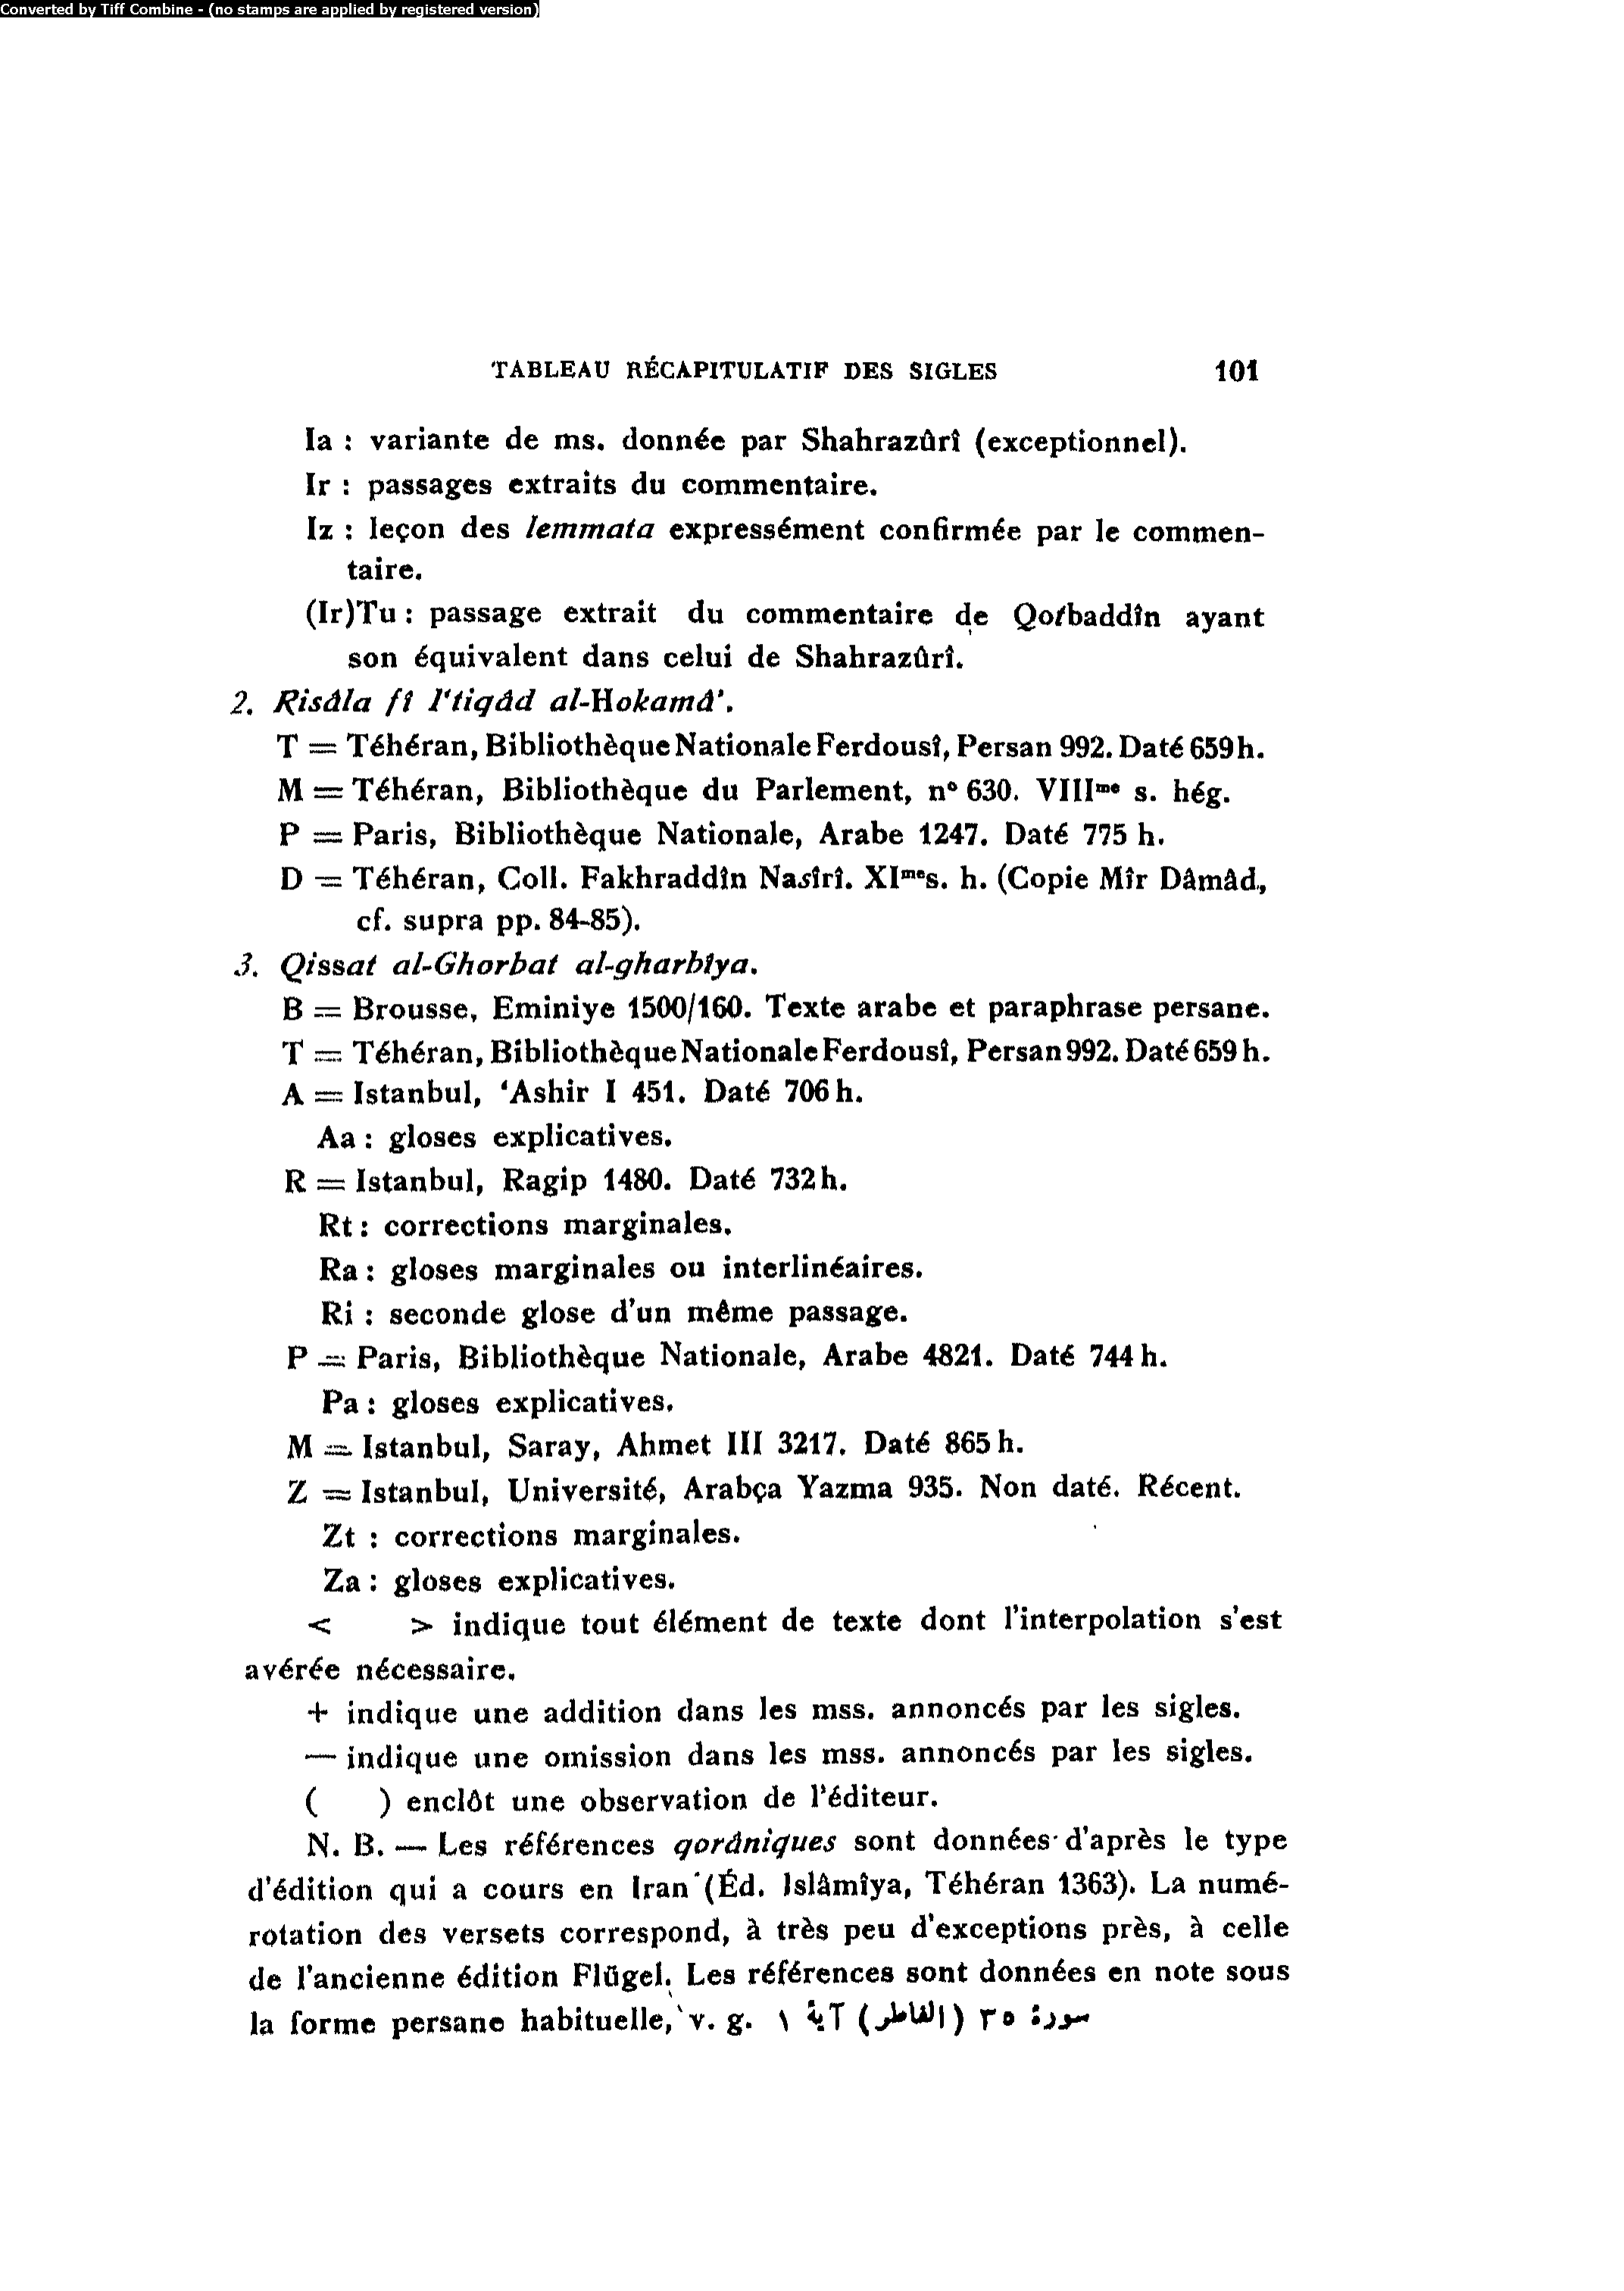 Converted by Tiff Combine - (no stamps are applied by registered version)
TABLEAU RÉCAPITULATIF DES SIGLES 101
Ia : variante de ms. donnée par Shahrazûrî (exceptionnel).
Ir : passages extraits du commentaire.
Iz : leçon des lemmata expressément confirmée par le commen-
taire.
(Ir)Tu : passage extrait du commentaire de Qotbaddîn ayant
son équivalent dans celui de Shahrazûrî.
2. Risâla fî I'tiqâd al-Hokamâ'.
T = Téhéran, Bibliothèque Nationale Ferdousî, Persan 992. Daté 659 h.
M = Téhéran, Bibliothèque du Parlement, n° 630. VIIIme s. hég.
P = Paris, Bibliothèque Nationale, Arabe 1247. Daté 775 h.
D = Téhéran, Coll. Fakhraddîn Nasîrî. XIme s. h. (Copie Mîr Dâmâd,
cf. supra pp. 84-85).
3. Qissat al-Ghorbat al-gharbîya.
B = Brousse, Eminiye 1500/160. Texte arabe et paraphrase persane.
T = Téhéran, Bibliothèque Nationale Ferdousî, Persan 992. Daté 659 h.
A = Istanbul, 'Ashir I 451. Daté 706 h.
Aa : gloses explicatives.
R = Istanbul, Ragip 1480. Daté 732 h.
Rt : corrections marginales.
Ra : gloses marginales ou interlinéaires.
Ri : seconde glose d'un même passage.
P = Paris, Bibliothèque Nationale, Arabe 4821. Daté 744 h.
Pa : gloses explicatives.
M = Istanbul, Saray, Ahmet III 3217. Daté 865 h.
Z = Istanbul, Université, Arabça Yazma 935. Non daté. Récent.
Zt : corrections marginales.
Za : gloses explicatives.
< > indique tout élément de texte dont l'interpolation s'est
avérée nécessaire.
+ indique une addition dans les mss. annoncés par les sigles.
— indique une omission dans les mss. annoncés par les sigles.
( ) enclôt une observation de l'éditeur.
N. B. — Les références qorâniques sont données d'après le type
d'édition qui a cours en Iran (Éd. Islâmîya, Téhéran 1363). La numé-
rotation des versets correspond, à très peu d'exceptions près, à celle
de l'ancienne édition Flügel. Les références sont données en note sous
la forme persane habituelle, v. g. سورهٔ ٣٥ (الفاطر) آيهٔ ١